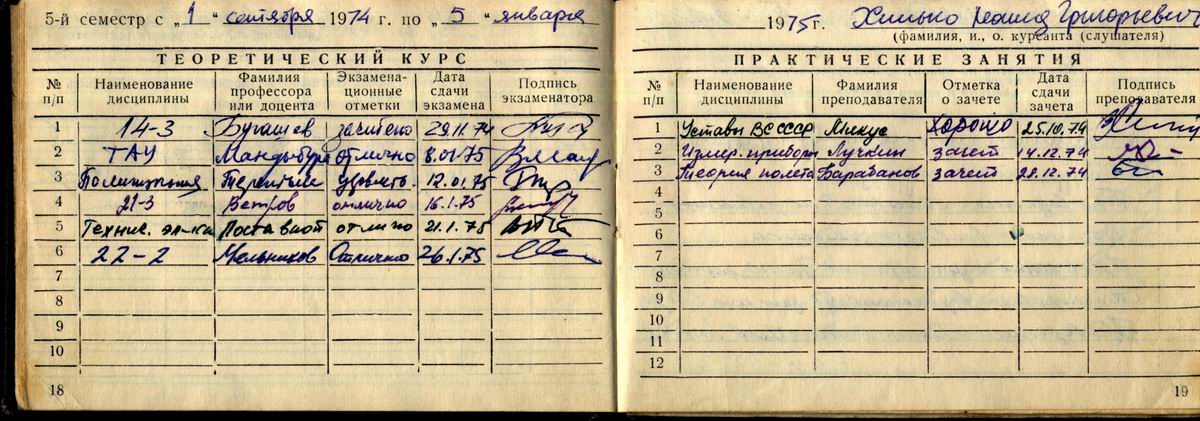 5-й семестр с „1“ сентября 1974 г. по „5“ января
ТЕОРЕТИЧЕСКИЙ КУРС
№ п/п Наименование дисциплины Фамилия профессора или доцента Экзамена-ционные отметки Дата сдачи экзамена Подпись экзаменатора
1 14-3 зачтено 29.11.74
2 ТАУ отлично 8.01.75
3 12.01.75
4 21-3 Ветров отлично 16.1.75
5 Технич. эл-ка отлично 21.1.75
6 22-2 Мельников Отлично 26.1.75
7
8
9
10
18
1975 г. Григорьевич
(фамилия, и., о. курсанта (слушателя)
ПРАКТИЧЕСКИЕ ЗАНЯТИЯ
№ п/п Наименование дисциплины Фамилия преподавателя Отметка о зачете Дата сдачи зачета Подпись преподавателя
1 Уставы ВС СССР Микус Хорошо 25.10.74
2 Измер. приборы Лучкин зачет 14.12.74
3 Теория полета Барабанов зачет 28.12.74
4
5
6
7
8
9
10
11
12
19